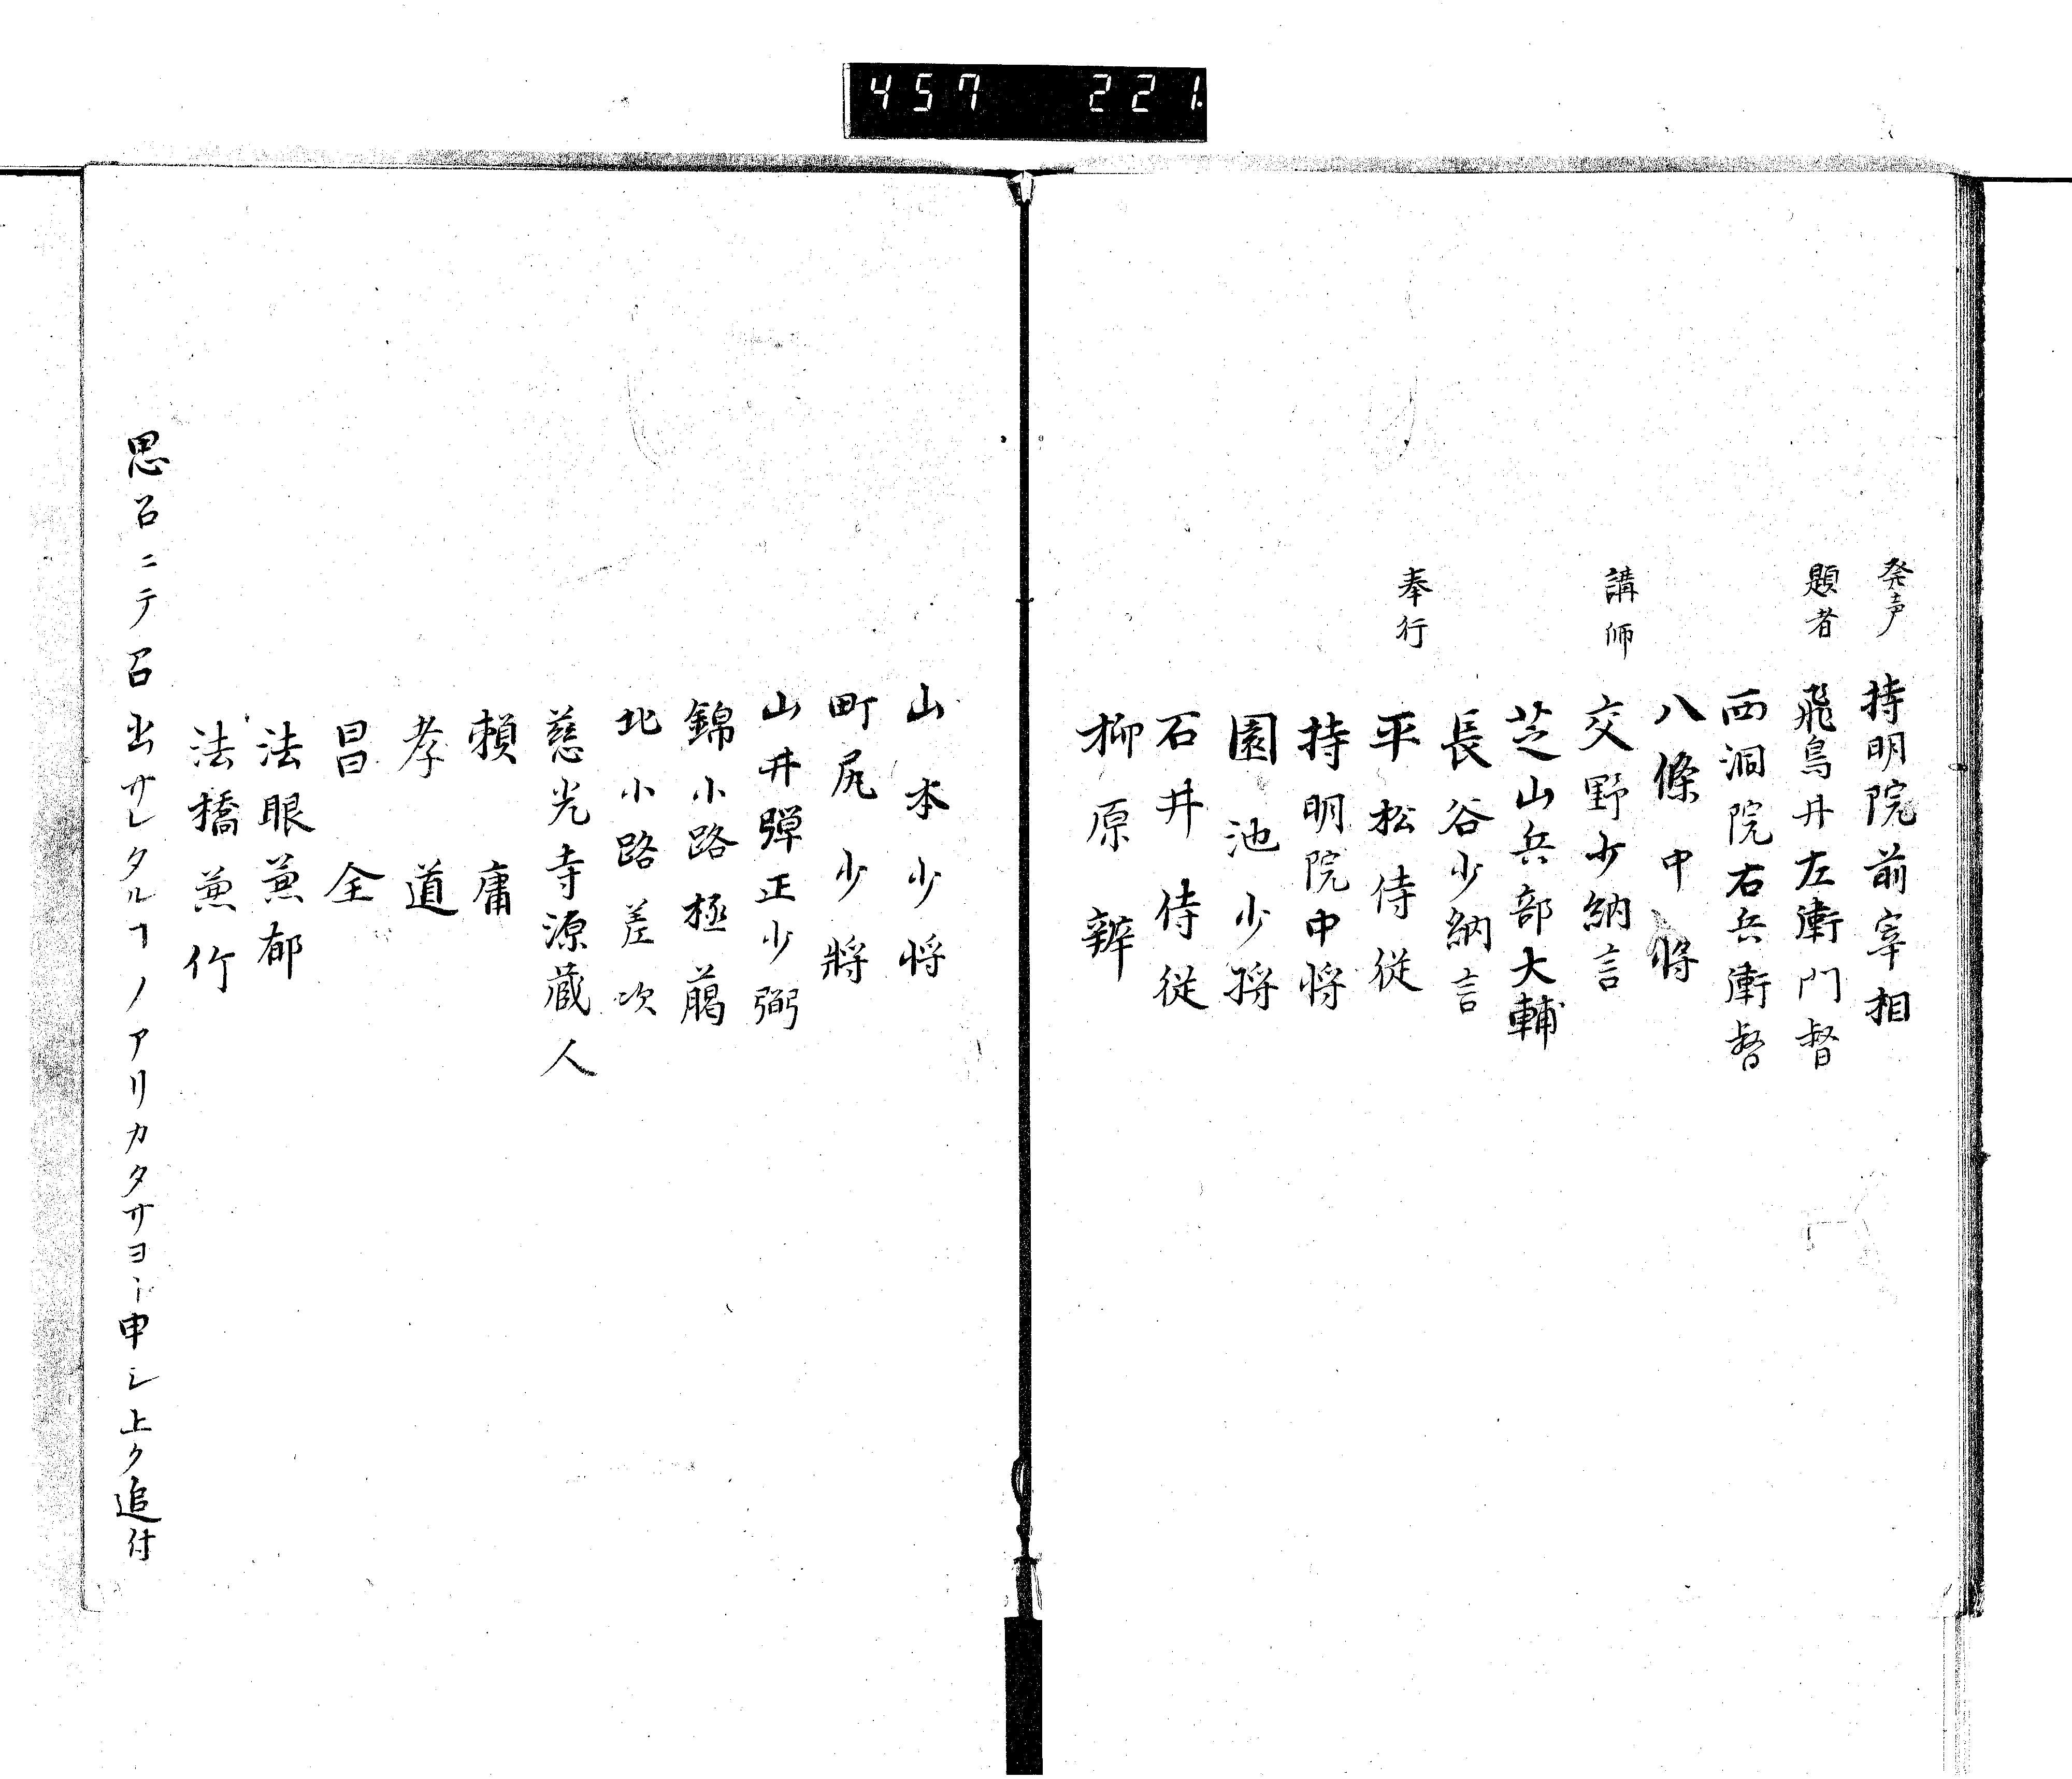 457 221
発声 持明院前宰相
題者 飛鳥井左衛門督
西洞院右兵衛督
八條中将
講師 交野少納言
芝山兵部大輔
長谷少納言
奉行 平松侍従
持明院中将
園池少将
石井侍従
柳原辨
山本少将
町尻少将
山井弾正少弼
錦小路極﨟
北小路差次
慈光寺源蔵人
頼庸
孝道
昌全
法眼兼郁
法橋兼竹
思召ニテ召出サレタルヿノアリカタサヨト申シ上ク追付